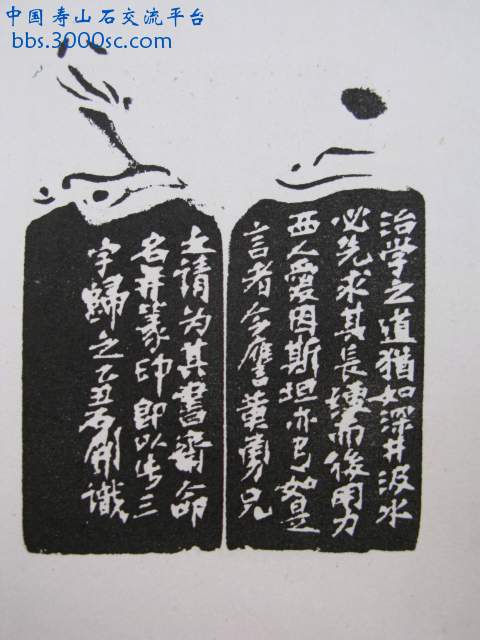 中国寿山石交流平台
bbs.3000sc.com
治学之道犹如深井汲水
必先求其長绠而後用力
西人愛因斯坦亦有如是
言者今應黄勇兄
之请为其書齋命
名并篆印即以此三
字歸之乙丑石開識